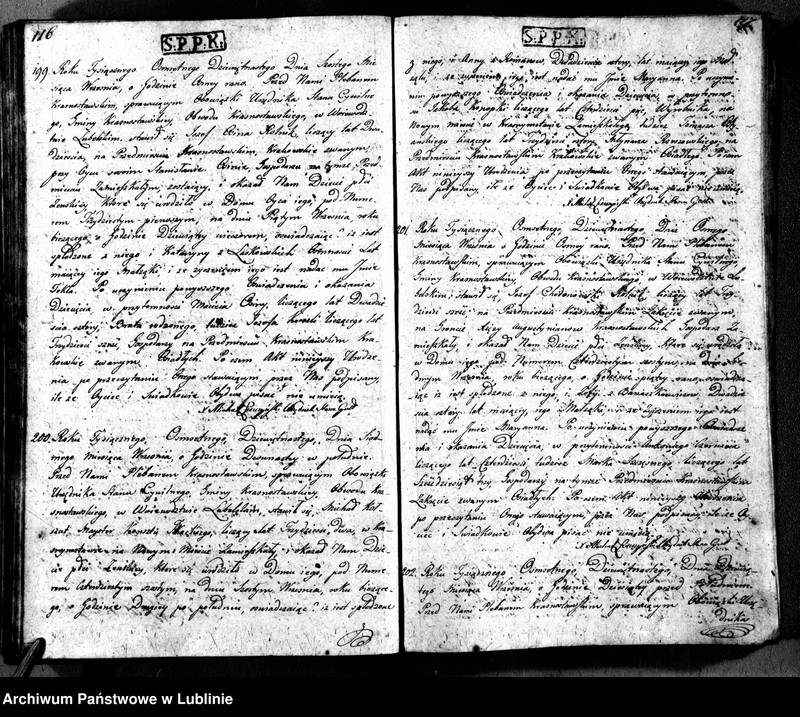 116
S.P.P.K.
199. Roku Tysiącznego Osmsetnego Dziewiętnastego Dnia Szóstego Mie
siąca Września, o Godzinie Osmey rano. Przed Nami Plebanem
Krasnostawskim, sprawuiącym Obowiązki Urzędnika Stanu Cywilne
go, Gminy Krasnostawskiey, Obwodu Krasnostawskiego, w Wojewodz
twie Lubelskim, stawił się Jozef Rolnik, liczący lat Dwa
dzieścia, na Przedmieściu Krasnostawskim, Krakowskie zwanym,
przy Oycu swoim Stanisławie Gospodarzu na tymże Przed
mieściu Zamieszkałym, zostaiący, i okazał Nam Dziecie płci
Żenskiey, które się urodziło w Domu Oyca iego, pod Nume
rem Trzydziestym pierwszym, na dniu Piątym Września, roku
bieżącego, o Godzinie Dziewiątey wieczorem, oświadczaiąc iż iest
spłodzone z niego, i Katarzyny z Laskowskich lat
maiącey iego Małżonki, i że życzeniem iego iest nadać mu Imie
Tekla. Po uczynieniu powyższego Oświadczenia i okazania
Dziecięcia, w przytomności liczącego lat Dwadzie
ścia cztery, Brata rodzonego, tudzież Jozefa liczącego lat
Trzydzieści sześć, Gospodarzy na Przedmieściu Krasnostawskim Kra
kowskie zwanym Osiadłych. Po czem Akt ninieyszy Urodze
nia po przeczytaniu Onego stawaiącym, przez Nas podpisany
ile że Oyciec i Świadkowie Obydwa pisać nie umieią.
X. Michał
200. Roku Tysiącznego, Osmsetnego, Dziewiętnastego, Dnia Siód
mego Miesiąca Września, o Godzinie Dwunastey w południe.
Przed Nami Plebanem Krasnostawskim, sprawuiącym Obowiązki
Urzędnika Stanu Cywilnego, Gminy Krasnostawskiey, Obwodu Kra
snostawskiego, w Wojewodztwie Lubelskim, stawił się, Michał
Maystor liczący lat Trzydzieści dwa, w Kra
snymstawie na Nowym Mieście Zamieszkały, i okazał Nam Dzie
cie płci Żenskiey, które się urodziło w Domu iego, pod Nume
rem Czterdziestym szóstym, na dniu Szóstym Września, roku bieżące
go, o Godzinie Drugiey po południu, oświadczaiąc iż iest spłodzone
S.P.P.K.
z niego, i Anny z Dwadzieścia cztery, lat maiącey iego Małżon
ki, i że życzeniem iego iest nadać mu Imie Maryanna. Po uczynie
niu powyższego Oświadczenia i okazania Dziecięcia w przytomno
ści Jakóba liczącego lat Czterdzieści pięć, Wyrobnika, na
Nowym mieście w Krasnymstawie Zamieszkałego, tudzież
liczącego lat Trzydzieści cztery, na
Przedmieściu Krasnostawskim Krakowskie zwanym Osiadłego. Po czem
Akt ninieyszy Urodzenia po przeczytaniu Onego Stawaiącym, przez
Nas podpisany, ile że Oyciec i Świadkowie Obydwa pisać nie umieią.
X. Michał
201. Roku Tysiącznego, Osmsetnego Dziewiętnastego, Dnia Osmego
Miesiąca Września o Godzinie Osmey rano. Przed Nami Plebanem
Krasnostawskim, sprawuiącym Obowiązki Urzędnika Stanu Cywilnego,
Gminy Krasnostawskiey, Obwodu Krasnostawskiego, w Wojewodztwie Lu
belskim, stawił się, Jozef Rolnik, liczący lat Trzy
dzieści sześć, na Przedmieściu Krasnostawskim Zakęcie zwanym,
na Gruncie Augustynianow Krasnostawskich, Gospodarz Za
mieszkały, i okazał Nam Dziecie płci Żenskiey, które się urodziło
w Domu iego, pod Numerem Czterdziestym szóstym, na dniu Sió
dmym Września, roku bieżącego, o Godzinie piątey rano, oświadcza
iąc iż iest spłodzone z niego, i Zofii z Dwadzie
ścia cztery lat maiącey, iego Małżonki, i że życzeniem iego iest
nadać mu Imie Maryanna. Po uczynieniu powyższego Oświadcze
nia i okazania Dziecięcia, w przytomności Antoniego
liczącego lat Czterdzieści, tudzież Marka liczącego lat
Sześćdziesiąt trzy, Gospodarzy na tymże Przedmieściu Krasnostawskim
Zakęcie zwanym Osiadłych. Po czem Akt ninieyszy Urodzenia
po przeczytaniu Onego stawaiącym, przez Nas podpisany, ile że Oy
ciec i Świadkowie Obydwa pisać nie umieią.
X. Michał
202. Roku Tysiącznego Osmsetnego, Dziewiętnastego, Dnia Dziewią
tego Miesiąca Września, o Godzinie Dziesiątey przed Południem
Przed Nami Plebanem Krasnostawskim, sprawuiącym Obowiązki Urzę
dnika
Archiwum Państwowe w Lublinie